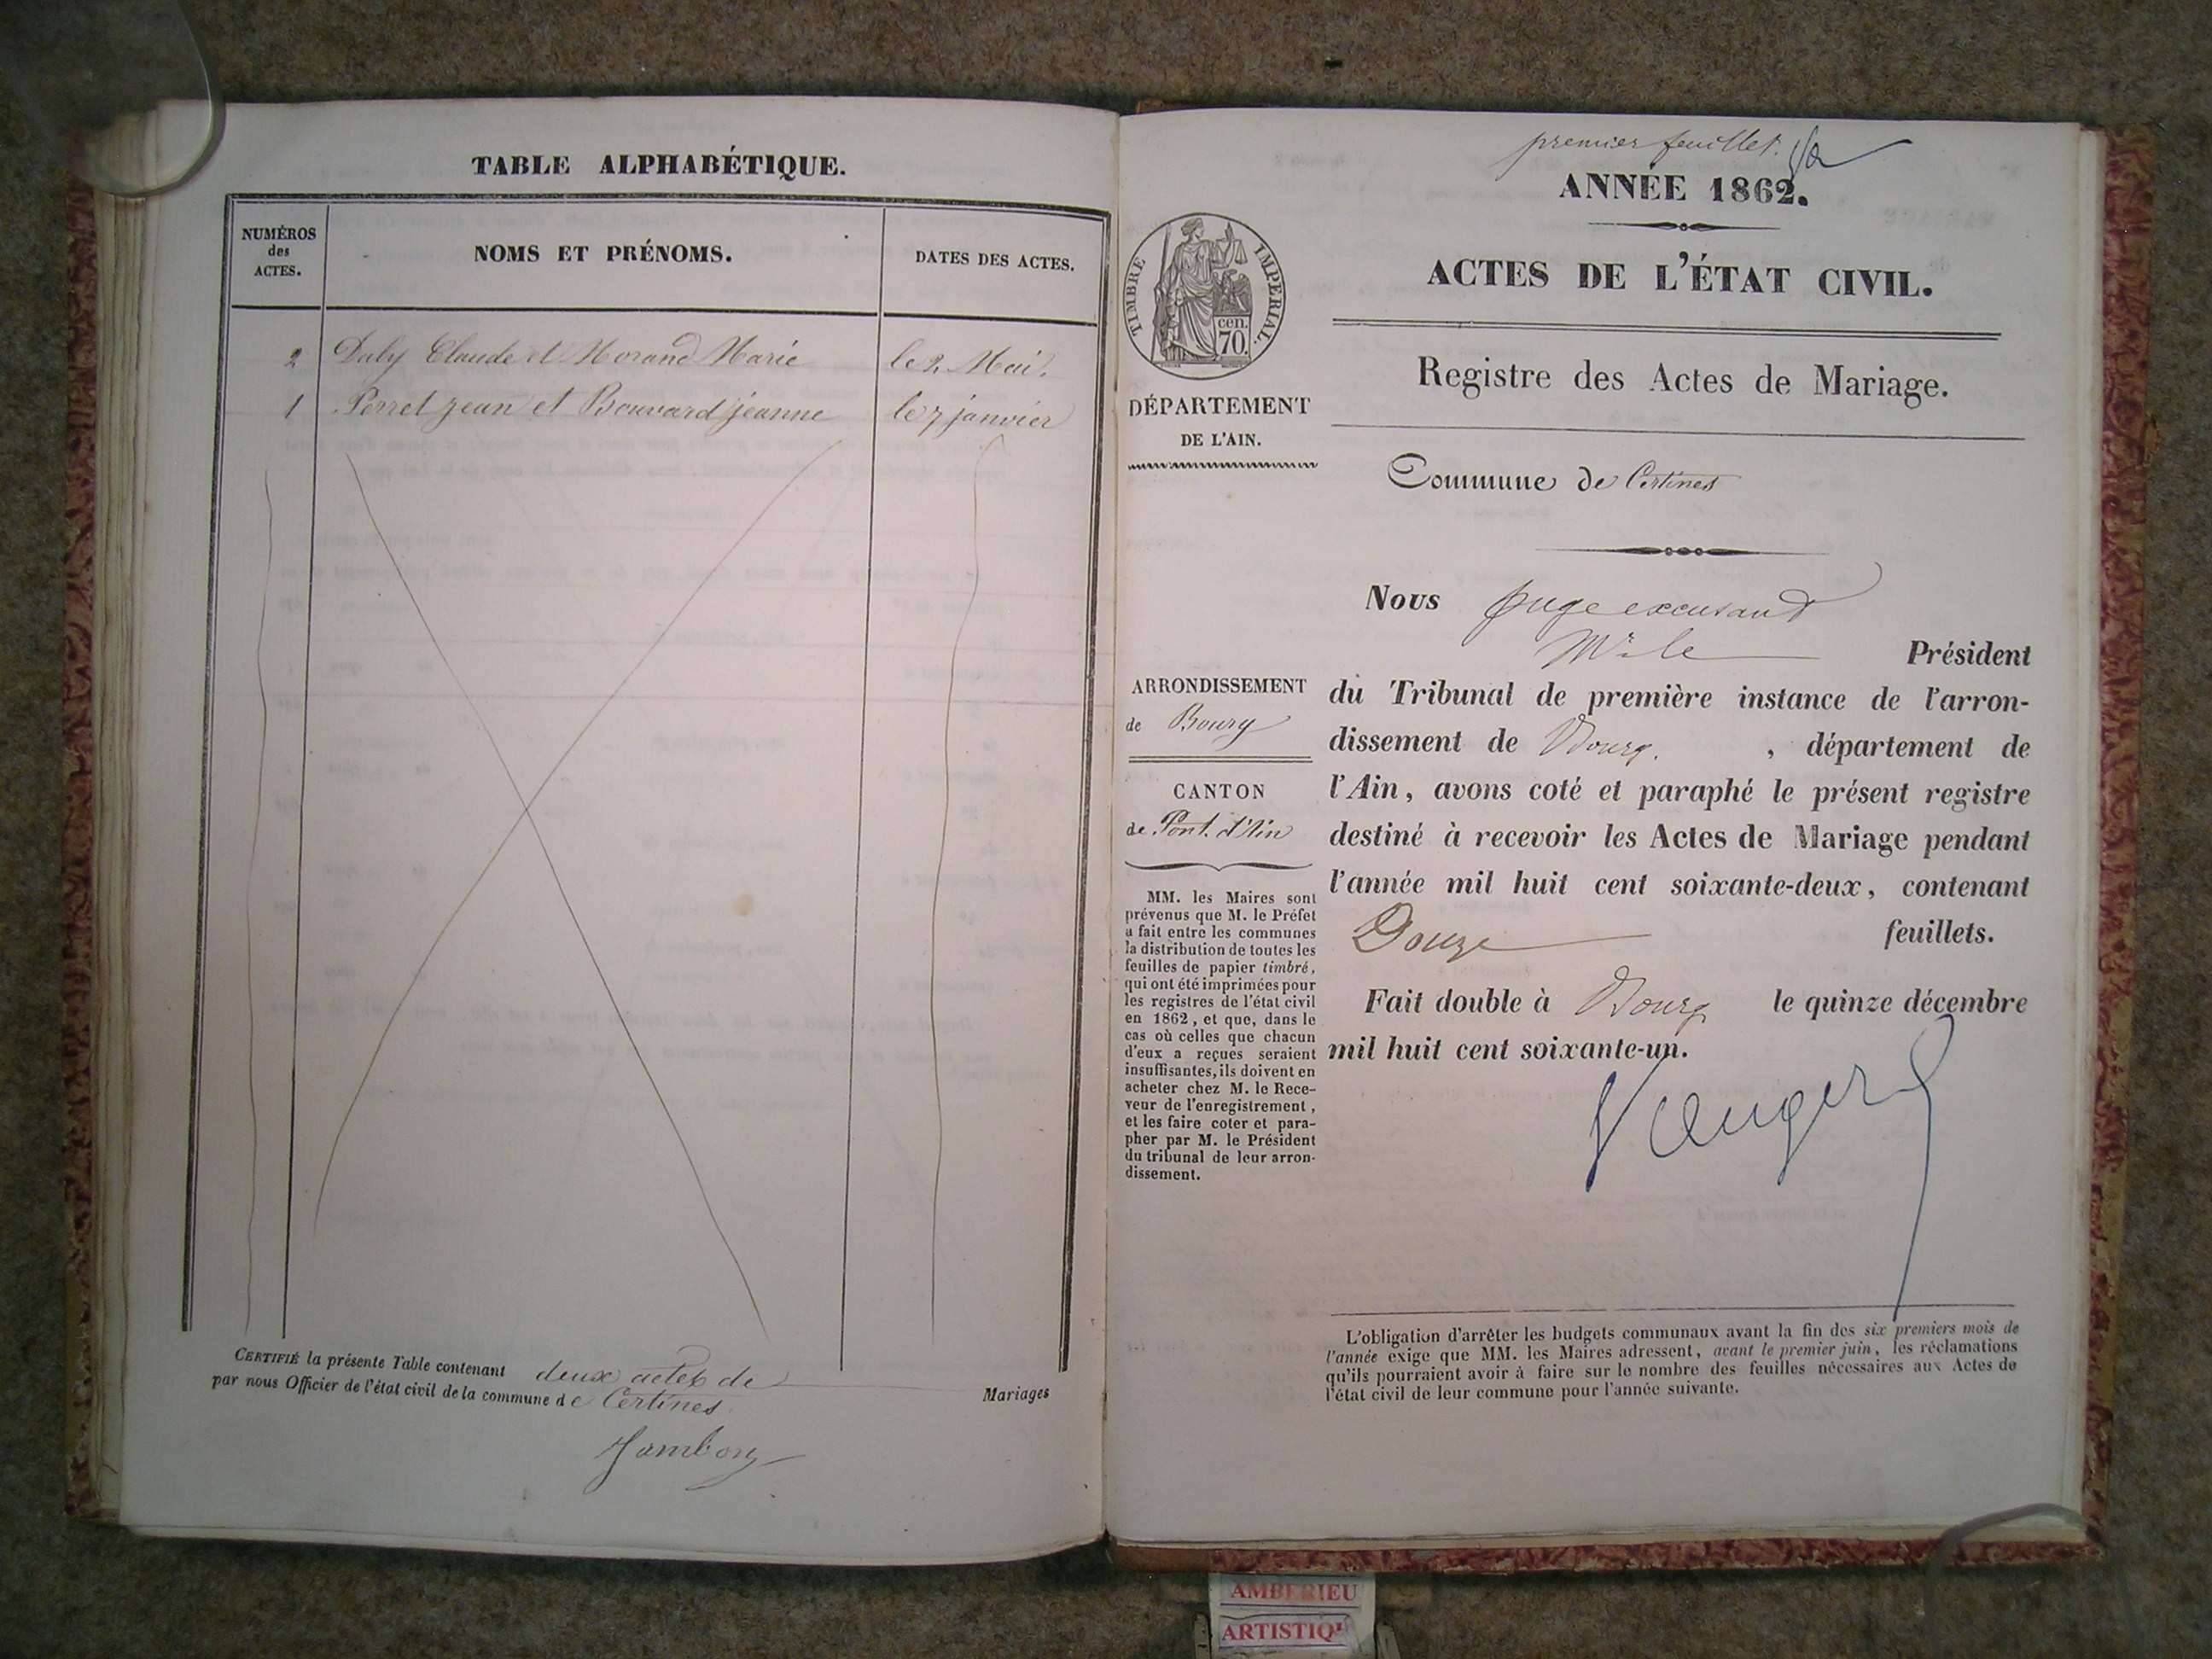 TABLE ALPHABÉTIQUE.
NUMÉROS
des
ACTES.
NOMS ET PRÉNOMS.
DATES DES ACTES.
2 Daly Claude et Morand Marie le 2 Mai.
1 Perret jean et Bouvard jeanne le 7 janvier
CERTIFIÉ la présente Table contenant deux actes de
Mariages
par nous Officier de l'état civil de la commune de Certines
Jambon
premier feuillet.
ANNÉE 1862.
ACTES DE L'ÉTAT CIVIL.
TIMBRE IMPÉRIAL.
cen.
70.
Registre des Actes de Mariage.
DÉPARTEMENT
DE L'AIN.
Commune de Certines
ARRONDISSEMENT
de Bourg
CANTON
de Pont-d'Ain
MM. les Maires sont
prévenus que M. le Préfet
a fait entre les communes
la distribution de toutes les
feuilles de papier timbré,
qui ont été imprimées pour
les registres de l'état civil
en 1862, et que, dans le
cas où celles que chacun
d'eux a reçues seraient
insuffisantes, ils doivent en
acheter chez M. le Rece-
veur de l'enregistrement,
et les faire coter et para-
pher par M. le Président
du tribunal de leur arron-
dissement.
Nous juge excusant
Mr le Président
du Tribunal de première instance de l'arron-
dissement de Bourg. , département de
l'Ain, avons coté et paraphé le présent registre
destiné à recevoir les Actes de Mariage pendant
l'année mil huit cent soixante-deux, contenant
Douze feuillets.
Fait double à Bourg le quinze décembre
mil huit cent soixante-un.
L'obligation d'arrêter les budgets communaux avant la fin des six premiers mois de
l'année exige que MM. les Maires adressent, avant le premier juin, les réclamations
qu'ils pourraient avoir à faire sur le nombre des feuilles nécessaires aux Actes de
l'état civil de leur commune pour l'année suivante.
AMBERIEU
ARTISTIQ